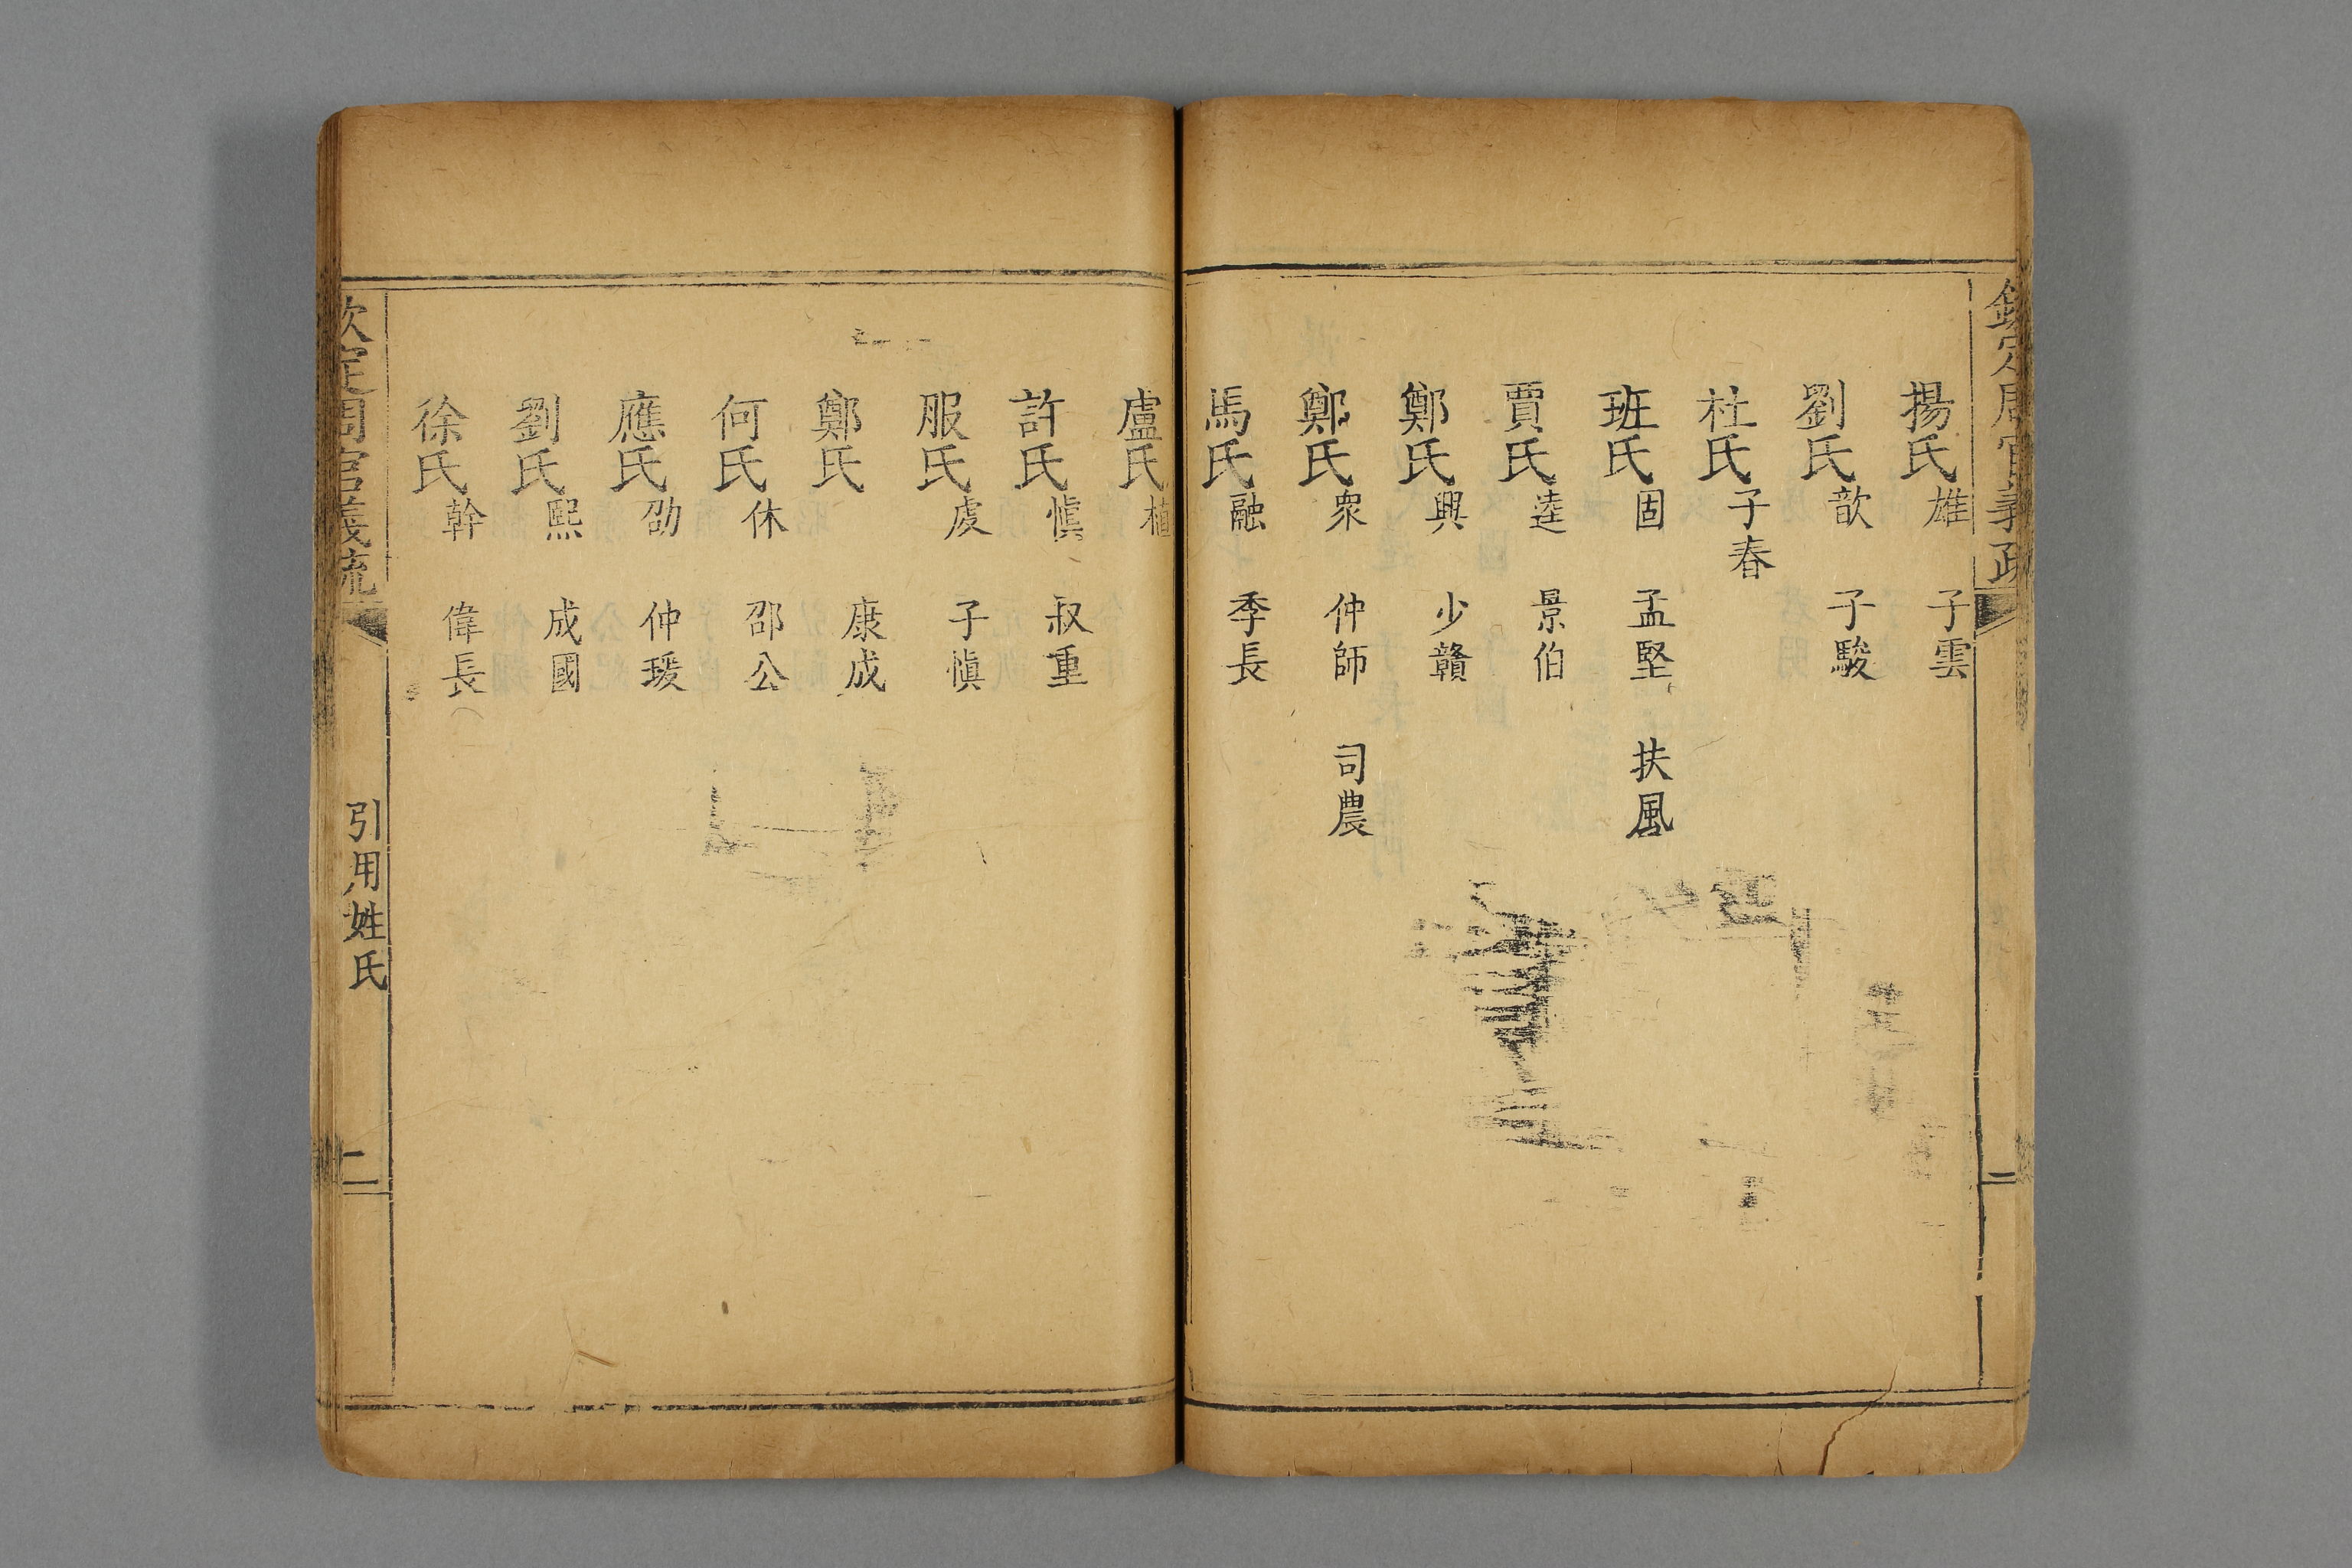 欽定周官義疏
二
揚氏雄 子雲
劉氏歆 子駿
杜氏子春
班氏固 孟堅 扶風
賈氏逵 景伯
鄭氏興 少贛
鄭氏衆 仲師 司農
馬氏融 季長
盧氏植
許氏愼 叔重
服氏虔 子愼
鄭氏 康成
何氏休 邵公
應氏劭 仲瑗
劉氏熙 成國
徐氏幹 偉長
欽定周官義疏
引用姓氏
二